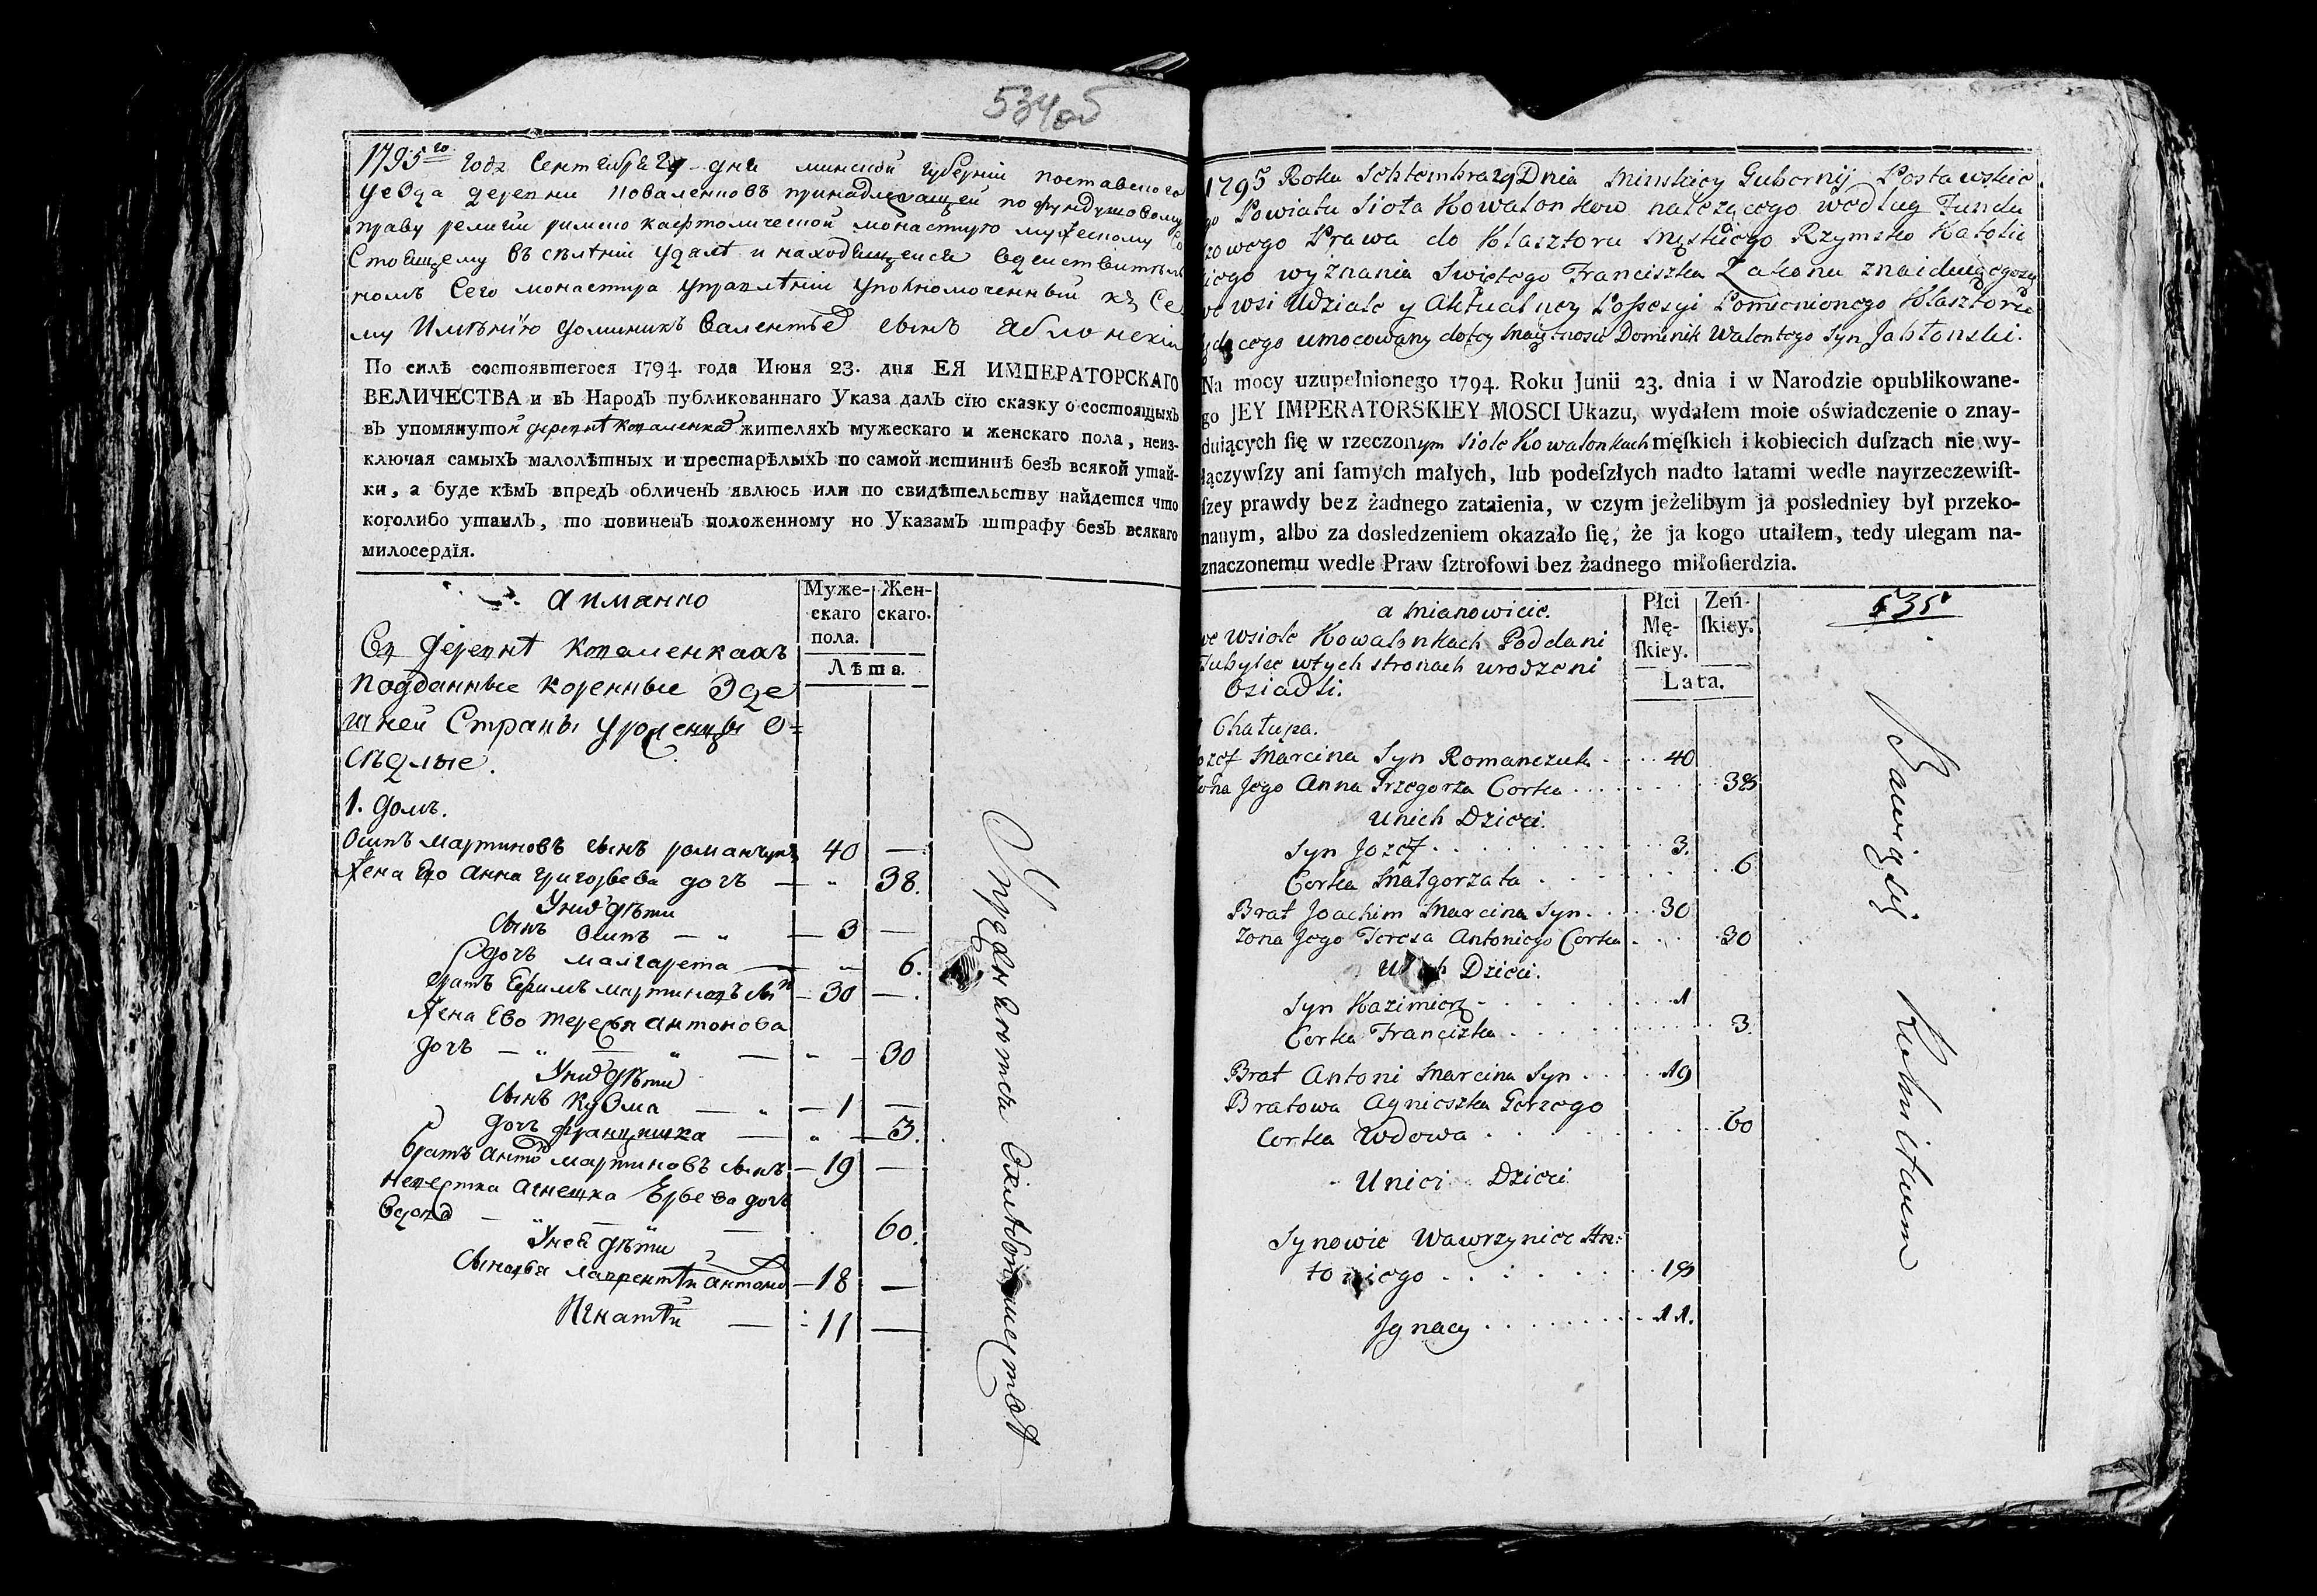 534об
1795го годa Сентября 29 дня минской губернiи поставского
уезда деревни Коваленковъ принадлежащей по фундушовому
праву религiи римско кафтолической монастырю мужескому со
стоящему въ селѣнiи удалѣ и находящемся вдействитель
номъ Сего монастыря управлѣнiи уполномоченный къ Се
му Имѣнiю доминикъ Валентѣв сынъ Яблонскiй
По силѣ состоявшегося 1794. года Июня 23. дня ЕЯ ИМПЕРАТОРСКАГО
ВЕЛИЧЕСТВА и въ НародЪ публикованнаго Указа далЪ сïю сказку о состоящыхъ
въ упомянутой деревнѣ коваленках жителяхЪ мужескаго и женскаго пола, неиз-
ключая самыхЪ малолѣтных и престарѣлыхЪ по самой истиннѣ безЪ всякой утай-
ки, а буде кѣмЪ впредЪ обличенЪ явлюсь или по свидѣтельству найдется что
коголибо утаилЪ, то повиненЪ положенному по УказамЪ штрафу безЪ всякаго
милосердïя.
а имянно
Муже-
скаго
пола.
Жен-
скаго.
Лѣта.
Въ деревнѣ коваленкахъ
подданные коренные Зде
шней Страны уроженцы о=
сѣдлые.
1. домъ.
Осипъ мартиновъ сынъ романчукъ 40 —
жена Его анна григорьева дочь — „ 38.
Униx дѣти
сынъ осипъ — „ — 3 —
дочь малгарета — „ 6.
братъ Ефимъ мартиновъ сын — 30 —
жена Ево тересья антонова
дочь — „ — „ — „ — 30
Униx дѣти
сынъ кузма — „ — 1 —
дочь францишка — „ — 3.
братъ антон мартиновъ сынъ — 19 —
невестка агнешка Юрьева дочь
вдова — „ — „ — 60.
Уней дѣти
сыновья лаврентѣй антонов — 18 —
Игнатѣй — 11 —
1795 Roku Sebtembra 29 Dnia Minskiey Gubernij Postawskie
go Powiatu Sioła Kowalonkow należącego według Fundu
szowego Prawa do Klasztoru Męskiego Rzymsko Katolic
kiego wyżnania Swiętego Franciszka Zakonu znaiduiącegosię
we wsi Udziale y Aktualney Possesyi Pomienionego Klasztoru
będącego umocowany dotey Maiętnosci Dominik Walentego Syn Jabłonski.
Na mocy uzupełnionego 1794. Roku Junii 23. dnia i w Narodzie opublikowane-
go JEY IMPERATORSKIEY MOSCI Ukazu, wydałem moie oświadczenie o znay-
duiących ſię w rzeczonym siole Kowalonkach męſkich i kobiecich duſzach nie wy-
łączywſzy ani ſamych małych, lub podeſzłych nadto latami wedle nayrzeczewiſt-
ſzey prawdy bez żadnego zataienia, w czym jeżelibym ja posledniey był przeko-
nanym, albo za dosledzeniem okazało ſię, że ja kogo utaiłem, tedy ulegam na-
znaczonemu wedle Praw ſztrofowi bez żadnego miłoſierdzia.
a Mianowicie.
Płci
Mę-
ſkiey.
Zeń-
ſkiey.
Lata.
535
we wsiole Kowalonkach Poddani
Tubylce wtych stronach urodzeni
Osiadli.
1 Chałupa.
Jozef Marcina Syn Romanczuk . . . 40
Zona Jego Anna Grzegorza Corka . . . . . 38
Unich Dzieci.
Syn Jozef . . . . . . 3.
Corka Małgorzata . . . . . . 6
Brat Joachim Marcina Syn . . . 30
Zona Jego Teresa Antoniego Corka . . . 30
Unich Dzieci.
Syn Kazimierz . . . . . . 1
Corka Franciszka . . . . . . 3.
Brat Antoni Marcina Syn . . . 19
Bratowa Agnieszka Gerzego
Corka Wdowa . . . . . . 60
Unici Dzieci
Synowie Wawrzyniec An:
toniego . . . . . . 18
Ignacy . . . . . . 11.